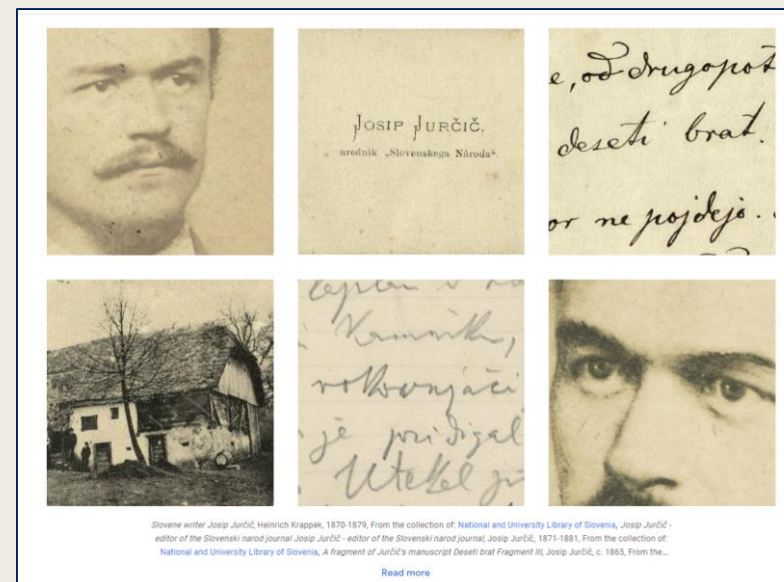 JOSIP JURČIČ,
urednik „Slovenskega Národa“.
e, od drugopot
deseti brat.
or ne pojdejo.
Kamnik,
rokovnjači
je pridigal
Utekel
Slovene writer Josip Jurčič, Heinrich Krappek, 1870-1879, From the collection of: National and University Library of Slovenia, Josip Jurčič -
editor of the Slovenski narod journal Josip Jurčič - editor of the Slovenski narod journal, Josip Jurčič, 1871-1881, From the collection of:
National and University Library of Slovenia, A fragment of Jurčič's manuscript Deseti brat Fragment III, Josip Jurčič, c. 1865, From the...
Read more